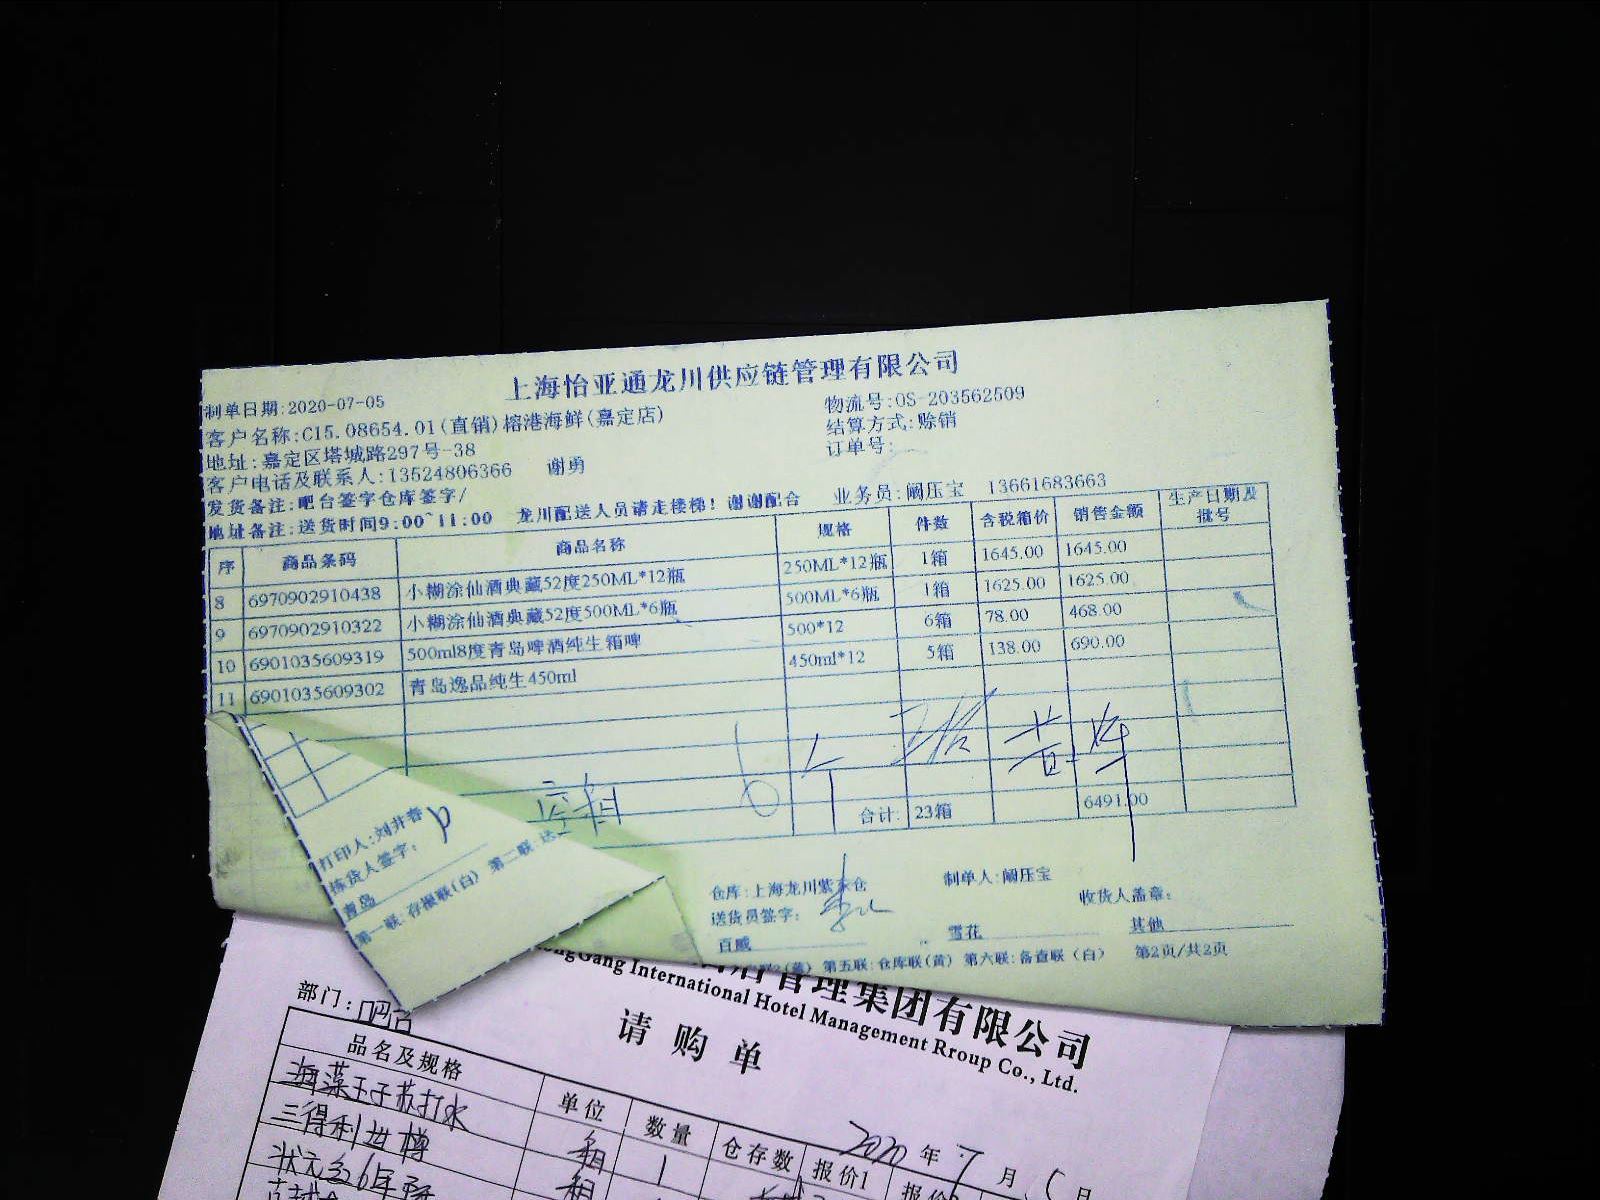 上海怡亚通龙川供应链管理有限公司
制单日期:2020-07-05
物流号:OS-203562509
客户名称:C15.08654.01(直销)榕港海鲜(嘉定店)
结算方式:赊销
地址:嘉定区塔城路297号-38
订单号:
客户电话及联系人:13524806366 谢勇
发货备注:吧台签字仓库签字/
业务员:阚压宝 13661683663
地址备注:送货时间9:00~11:00 龙川配送人员请走楼梯!谢谢配合
序 商品条码 商品名称 规格 件数 含税箱价 销售金额 生产日期及批号
8 6970902910438 小糊涂仙酒典藏52度250ML*12瓶 250ML*12瓶 1箱 1645.00 1645.00
9 6970902910322 小糊涂仙酒典藏52度500ML*6瓶 500ML*6瓶 1箱 1625.00 1625.00
10 6901035609319 500ml8度青岛啤酒纯生箱啤 500*12 6箱 78.00 468.00
11 6901035609302 青岛逸品纯生450ml 450ml*12 5箱 138.00 690.00
空箱 6个
合计: 23箱 6491.00
打印人:刘井春
拣货人签字:
青岛
第一联:存根联(白) 第二联:送
仓库:上海龙川紫 仓
制单人:阚压宝
送货员签字:
收货人盖章:
百威 雪花 其他
第五联:仓库联(黄) 第六联:备查联(白) 第2页/共2页
管理集团有限公司
Gang International Hotel Management Rroup Co., Ltd.
请购单
部门:吧台
2020年7月5日
品名及规格 单位 数量 仓存数 报价1
海藻王子苏打水 箱 1
三得利 樽 箱